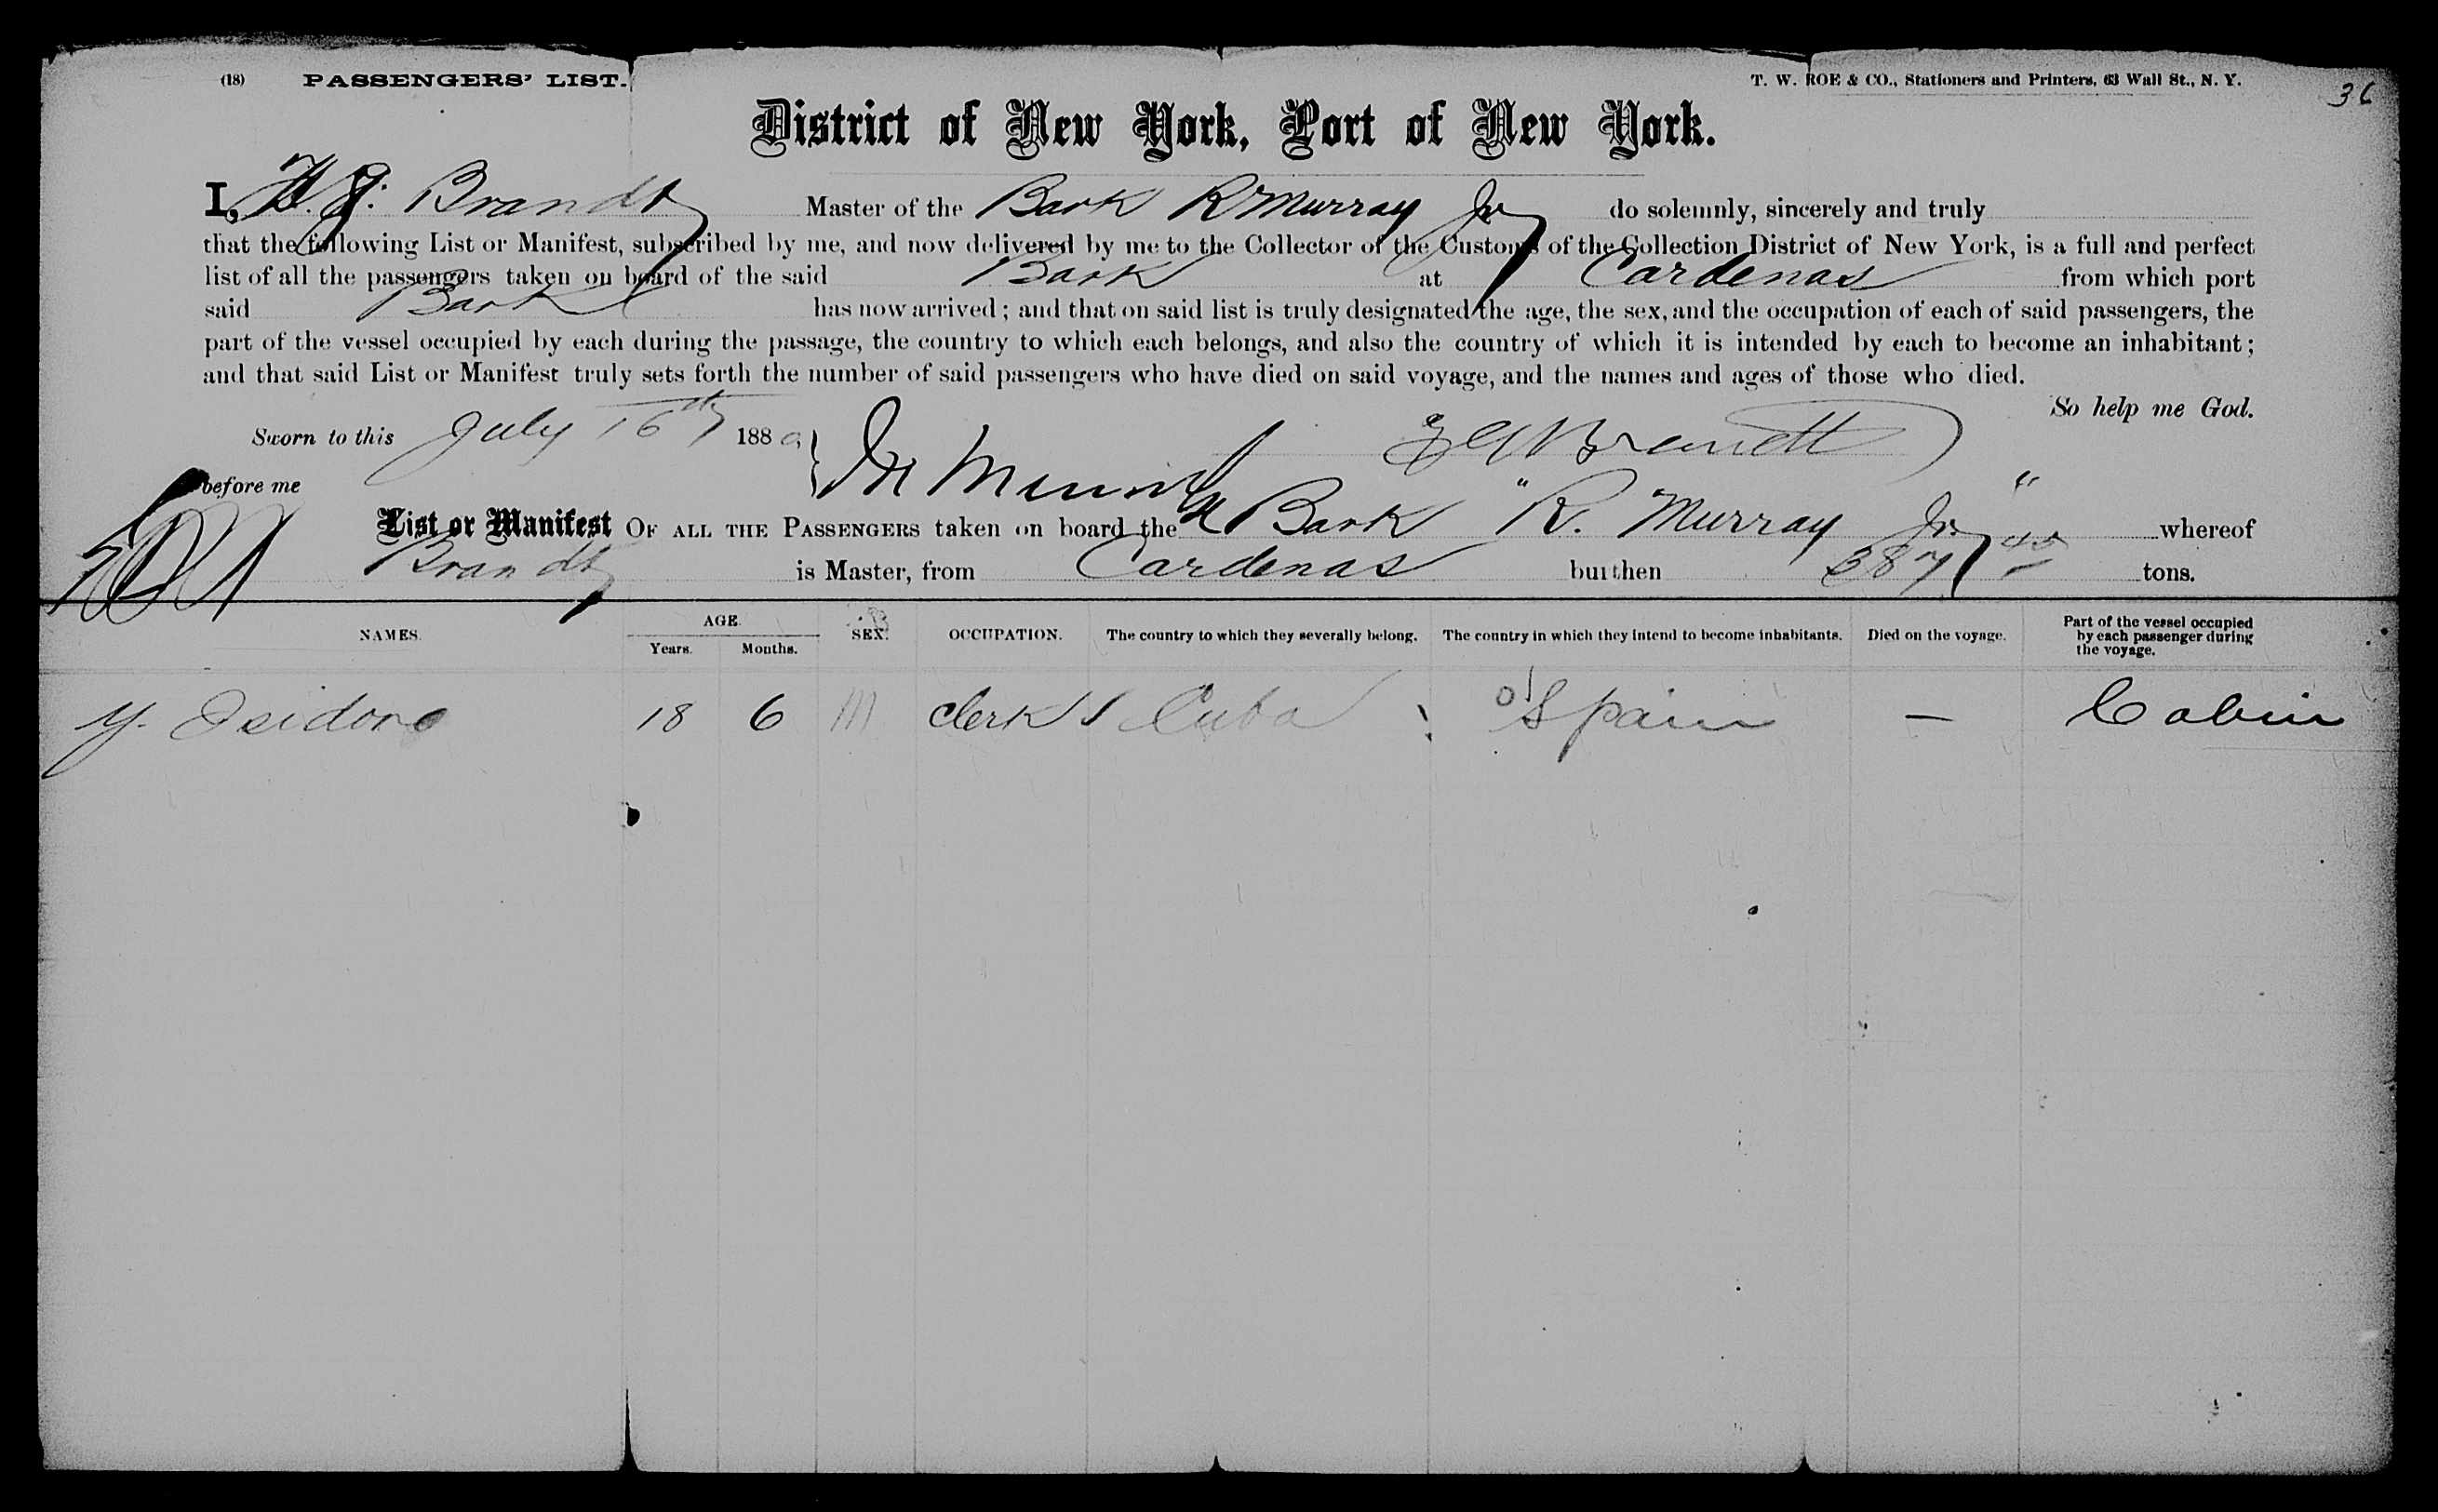 (18) PASSENGERS' LIST. T. W. ROE & CO., Stationers and Printers, 63 Wall St., N. Y. 36
District of New York, Port of New York.
I, H. J. Brandt Master of the Bark R Murray Jr do solemnly, sincerely and truly
that the following List or Manifest, subscribed by me, and now delivered by me to the Collector of the Customs of the Collection District of New York, is a full and perfect
list of all the passengers taken on board of the said Bark at Cardenas from which port
said Bark has now arrived; and that on said list is truly designated the age, the sex, and the occupation of each of said passengers, the
part of the vessel occupied by each during the passage, the country to which each belongs, and also the country of which it is intended by each to become an inhabitant;
and that said List or Manifest truly sets forth the number of said passengers who have died on said voyage, and the names and ages of those who died.
So help me God.
Sworn to this July 16th 188 Brandt
before me
List or Manifest OF ALL THE PASSENGERS taken on board the Bark "R. Murray Jr" whereof
Brandt is Master, from Cardenas burthen 387 40 tons.
NAMES. AGE. Years. Months. SEX. OCCUPATION. The country to which they severally belong. The country in which they intend to become inhabitants. Died on the voyage. Part of the vessel occupied by each passenger during the voyage.
Y. Isidoro 18 6 M Clerk Cuba Spain — Cabin